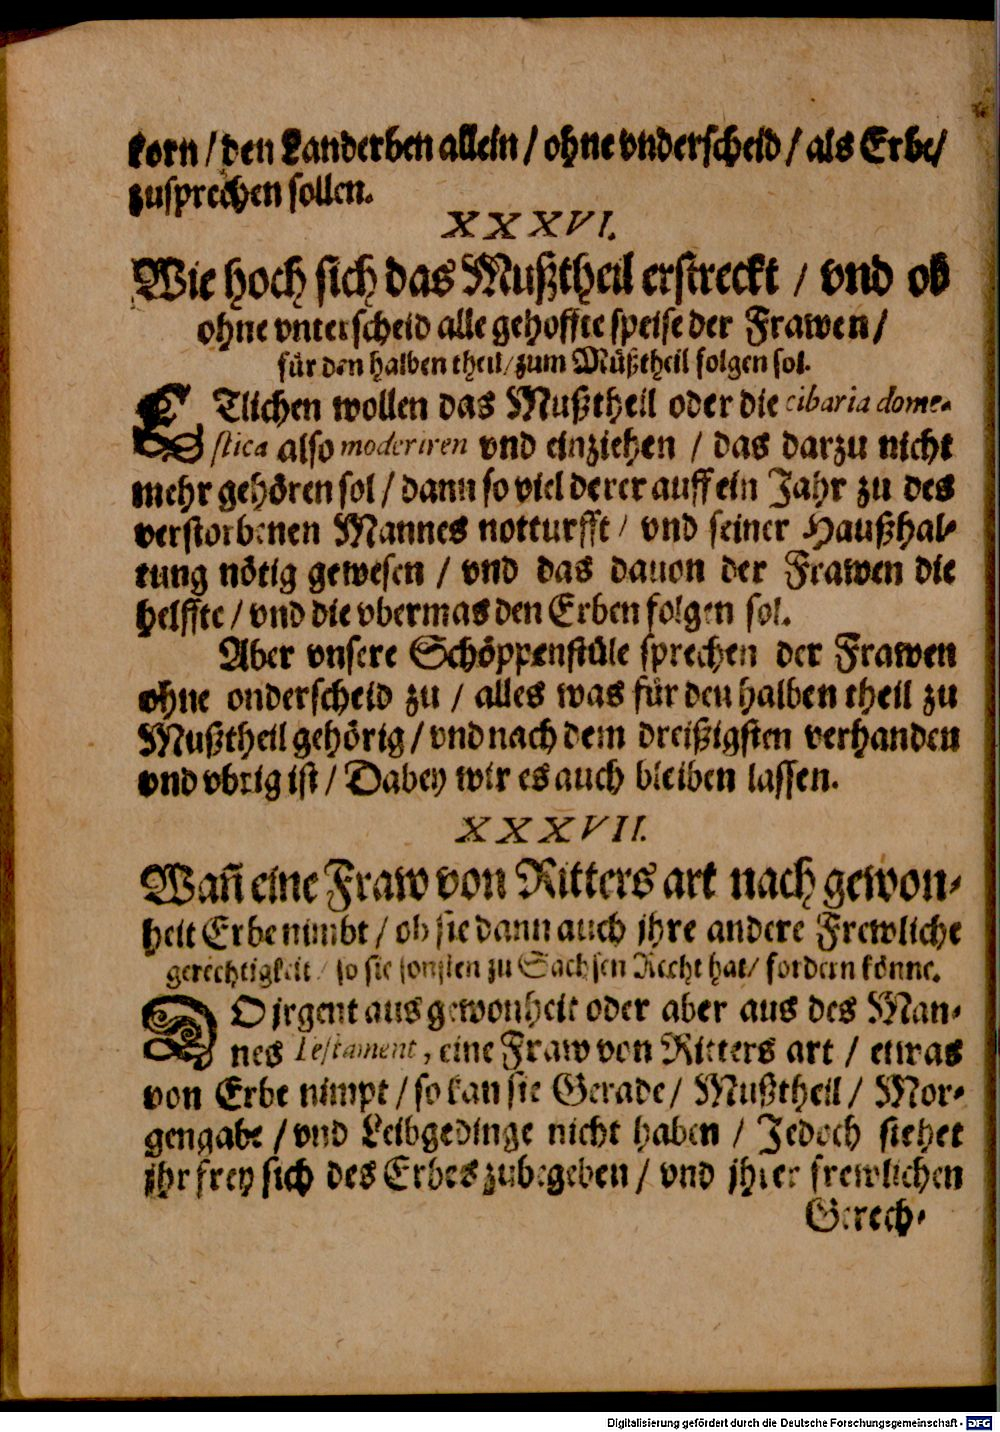 korn / den Landerben allein / ohne vnderscheid / als Erbe /
zusprechen sollen.
XXXVI.
Wie hoch sich das Mußtheil erstreckt / vnd ob
ohne vnterscheid alle gehoffte speise der Frawen /
für den halben theil / zum Mußtheil folgen sol.
ETlichen wollen das Mußtheil oder die cibaria dome-
stica also moderiren vnd einziehen / das darzu nicht
mehr gehören sol / dann so viel derer auff ein Jahr zu des
verstorbenen Mannes notturfft / vnd seiner Haußhal-
tung nötig gewesen / vnd das dauon der Frawen die
helffte / vnd die vbermas den Erben folgen sol.
Aber vnsere Schöppenstüle sprechen der Frawen
ohne onderscheid zu / alles was für den halben theil zu
Mußtheil gehörig / vnd nach dem dreißigsten verhanden
vnd vbrig ist / Dabey wir es auch bleiben lassen.
XXXVII.
Wañ eine Fraw von Ritters art nach gewon-
heit Erbe nimbt / ob sie dann auch jhre andere Frewliche
gerechtigkeit / so sie sonsten zu Sachsen Recht hat / fordern könne.
SO jrgent aus gewonheit oder aber aus des Man-
nes Testament, eine Fraw von Ritters art / etwas
von Erbe nimpt / so kan sie Gerade / Mußtheil / Mor-
gengabe / vnd Leibgedinge nicht haben / Jedoch stehet
jhr frey sich des Erbes zubegeben / vnd jhrer frewlichen
Gerech-
Digitalisierung gefördert durch die Deutsche Forschungsgemeinschaft - DFG